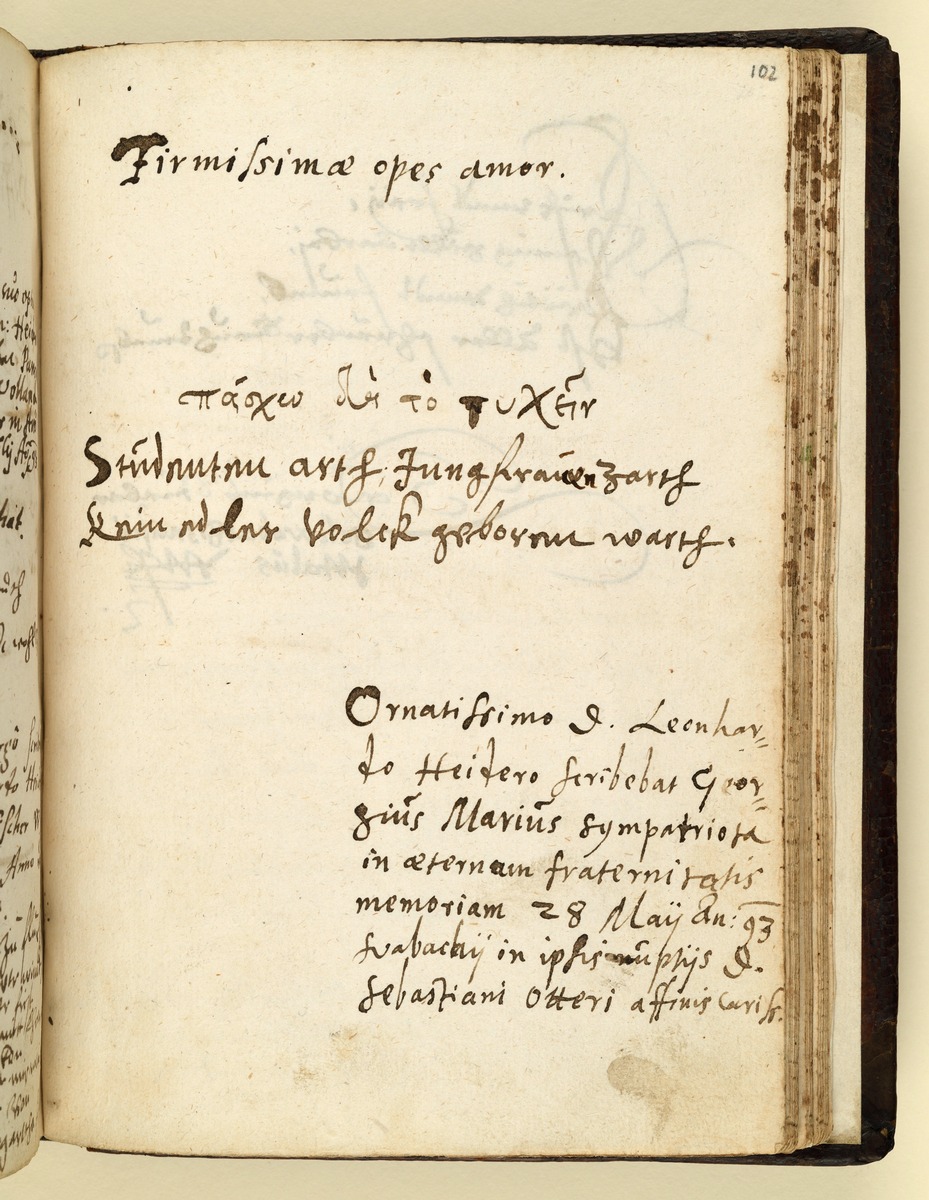 102
Firmissimæ opes amor.
πάσχω διὰ τὸ τυχεῖν
Studenten arth, Jungfrauen zarth
Kein edler Volck geboren warth.
Ornatissimo D. Leonhar=
do Heidero scribebat Geor=
gius Marius sympatriota
in æternam fraternitatis
memoriam 28 Maij An: 93
Svabachij in ipsis nuptijs D.
Sebastiani Otteri affinis cariss.